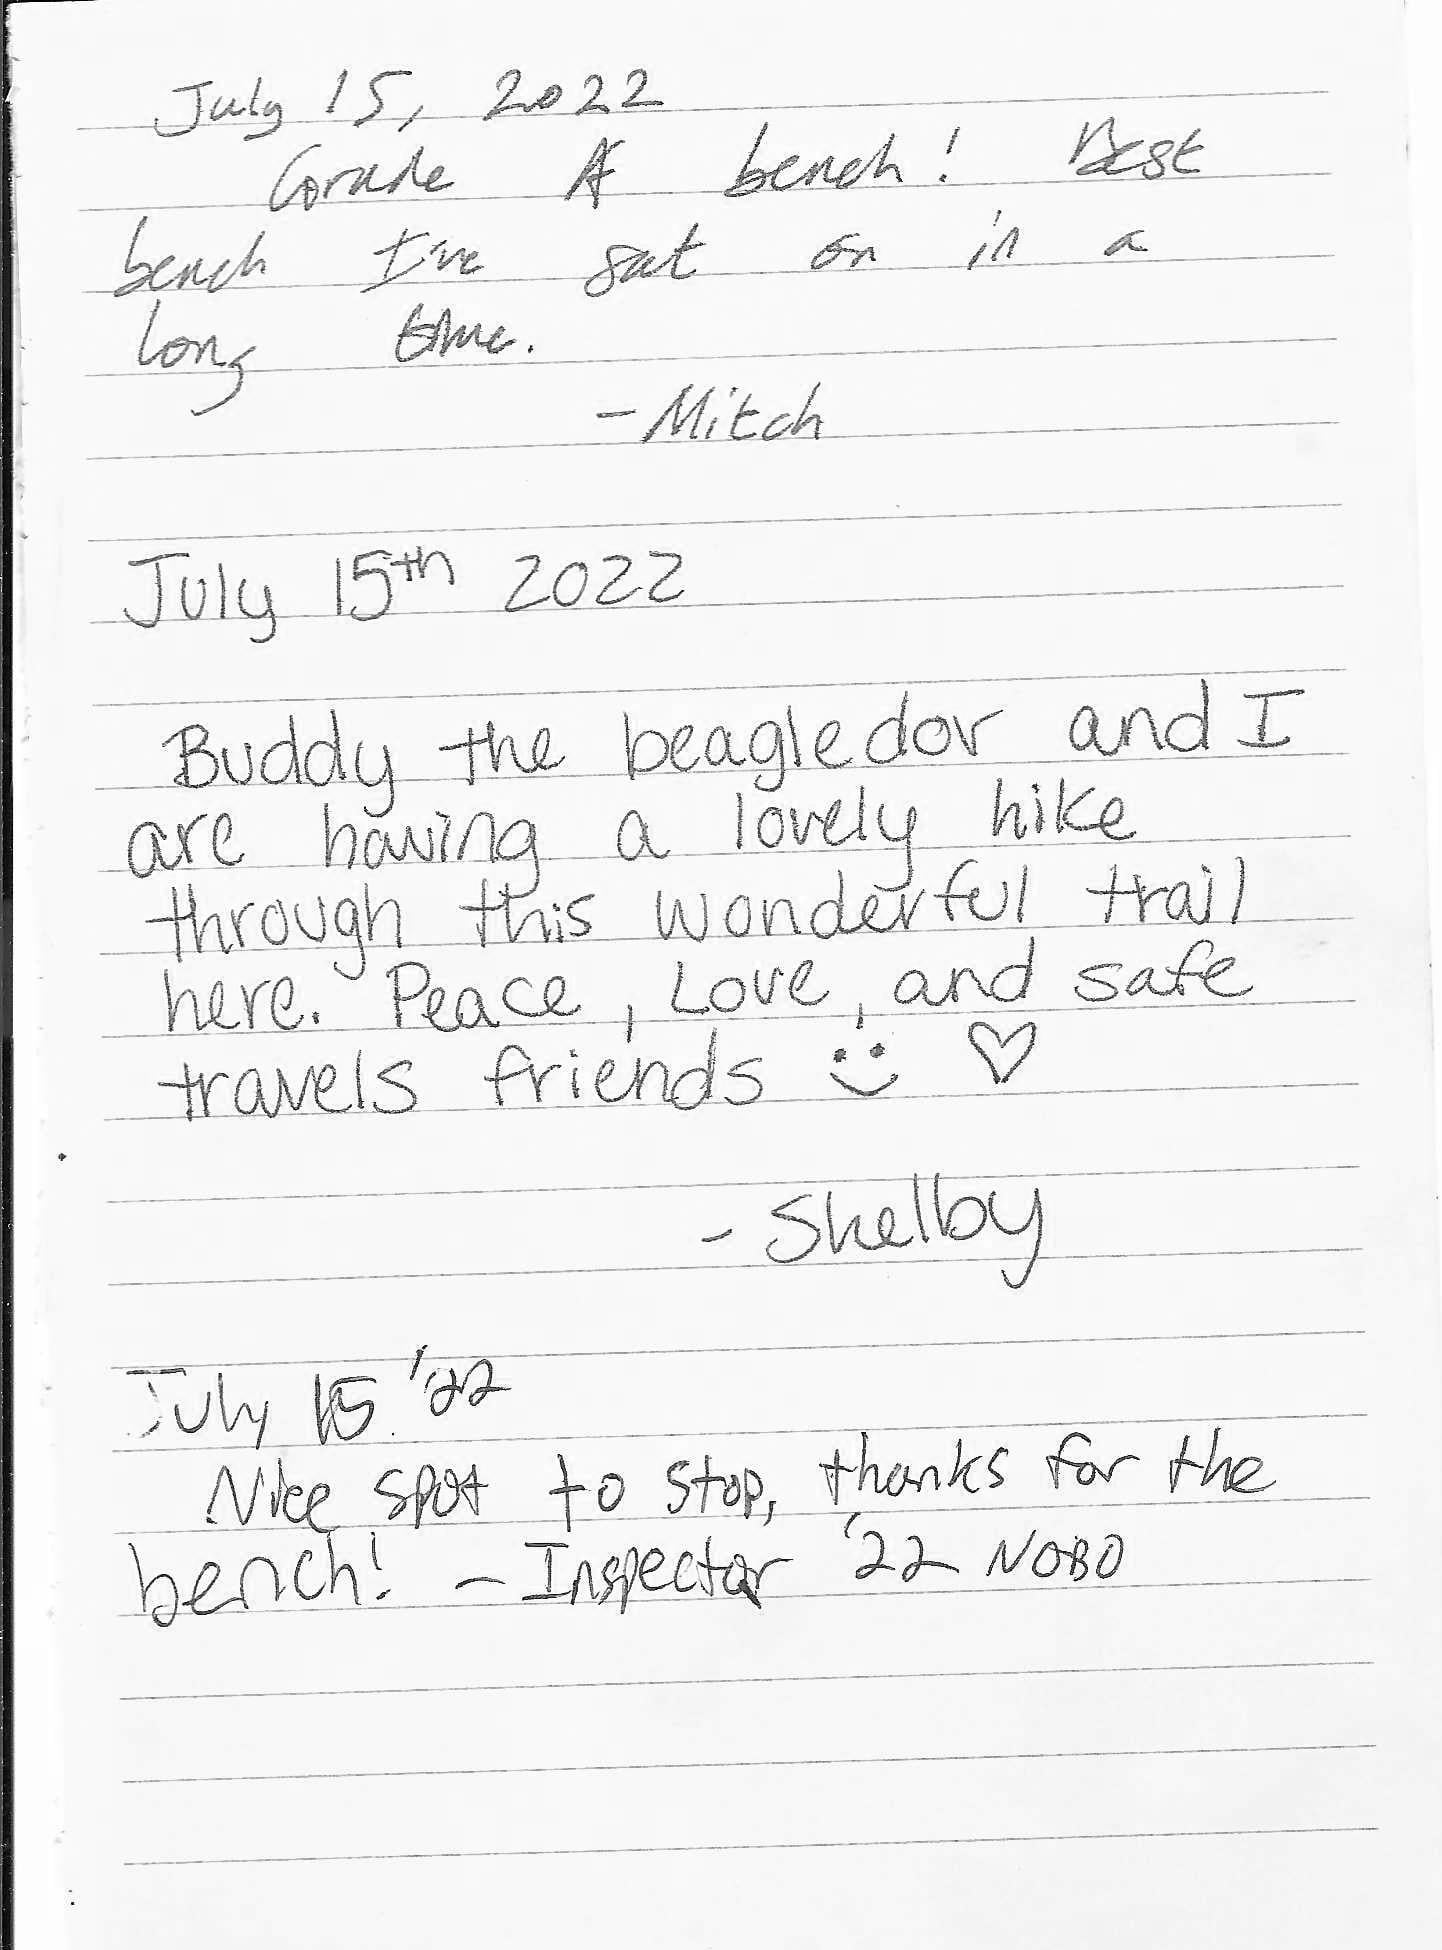 July 15, 2022
Grade A bench! Best
bench I've sat on in a
long time.
- Mitch
July 15th 2022
Buddy the beagledor and I
are having a lovely hike
through this wonderful trail
here. Peace, Love, and safe
travels friends :) ♡
- Shelby
July 15 '22
Nice spot to stop, thanks for the
bench! - Inspector '22 NOBO